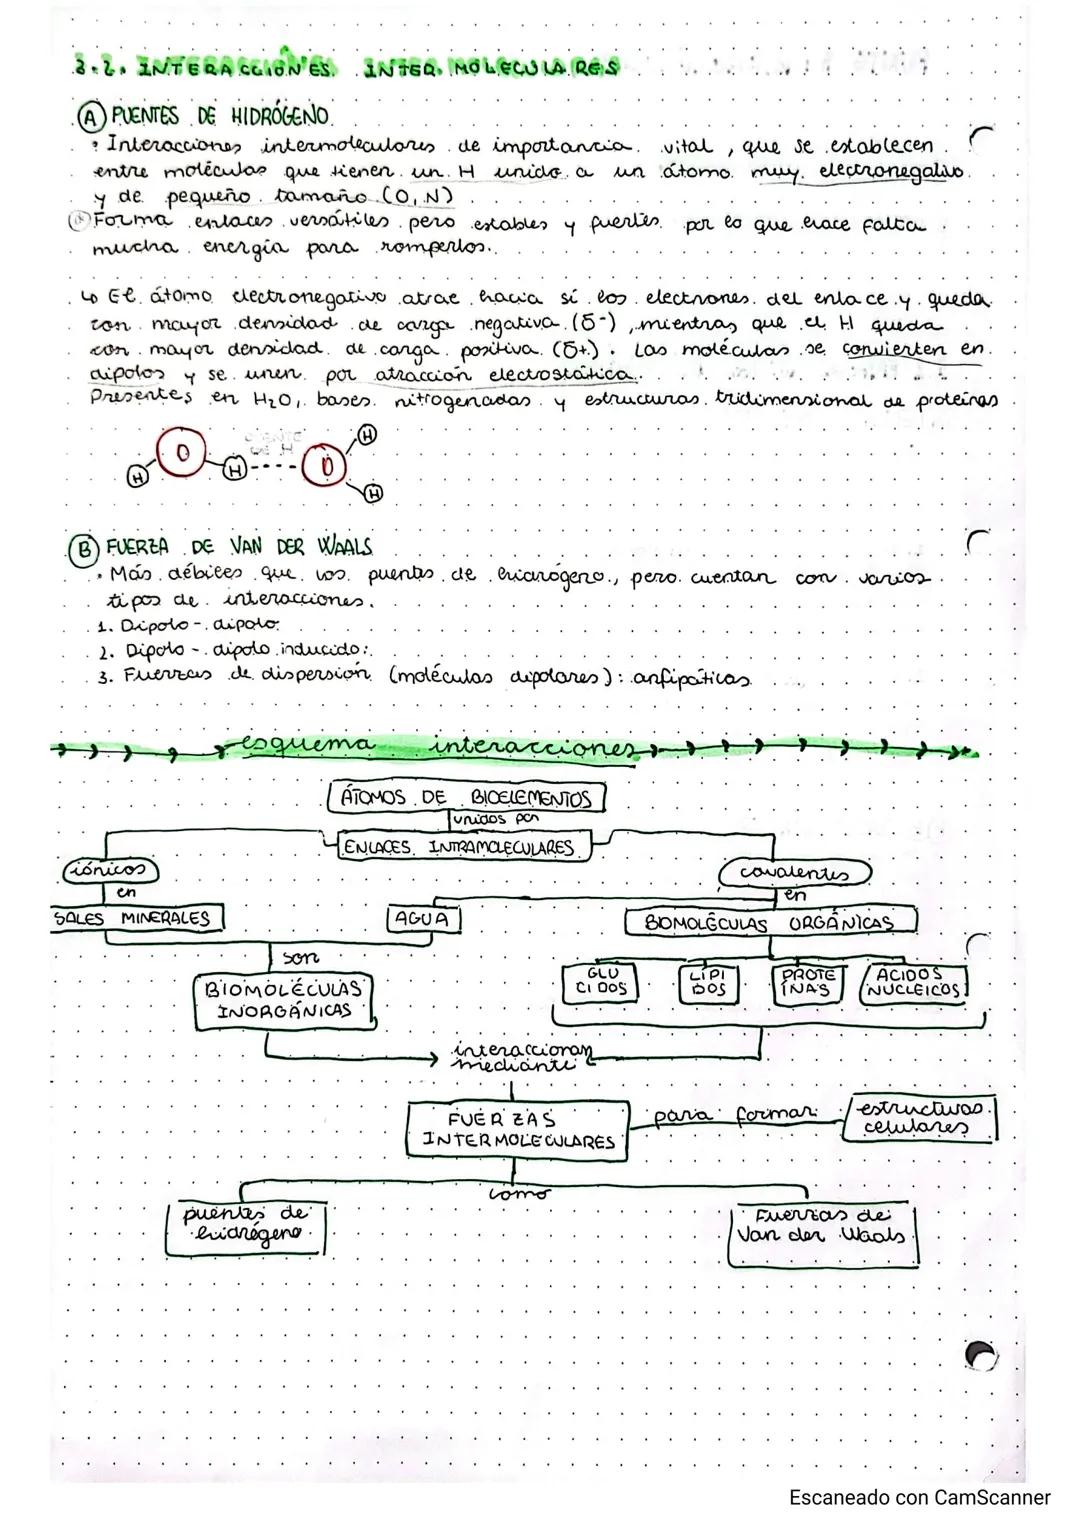 3.2. INTERACCIONES INTERMOLECULARES
A PUENTES DE HIDRÓGENO
• Interacciones intermoleculares de importancia vital, que se establecen
entre moléculas que tienen un H unido a un átomo muy electronegativo
y de pequeño tamaño (O, N)
Forma enlaces versátiles pero estables y fuertes por lo que hace falta
mucha energía para romperlos.
↳ El átomo electronegativo atrae hacia sí los electrones del enlace y queda
con mayor densidad de carga negativa (δ-), mientras que el H queda
con mayor densidad de carga positiva (δ+). Las moléculas se convierten en
dipolos y se unen por atracción electrostática.
Presentes en H₂O, bases nitrogenadas y estructuras tridimensional de proteínas
H O H ---- O H H
B FUERZA DE VAN DER WAALS
• Más débiles que los puentes de hidrógeno, pero cuentan con varios
tipos de interacciones.
1. Dipolo - dipolo
2. Dipolo - dipolo inducido:
3. Fuerzas de dispersión (moléculas dipolares): anfipáticas
esquema interacciones
ÁTOMOS DE BIOELEMENTOS
unidos por
ENLACES INTRAMOLECULARES
iónicos
covalentes
en
en
SALES MINERALES
AGUA
BIOMOLÉCULAS ORGÁNICAS
son
BIOMOLÉCULAS
INORGÁNICAS
GLU
CIDOS
LÍPI
DOS
PROTE
ÍNAS
ÁCIDOS
NUCLEICOS
interaccionan
mediante
FUERZAS
INTERMOLECULARES
para formar
estructuras
celulares
como
puentes de
hidrógeno
Fuerzas de
Van der Waals
Escaneado con CamScanner